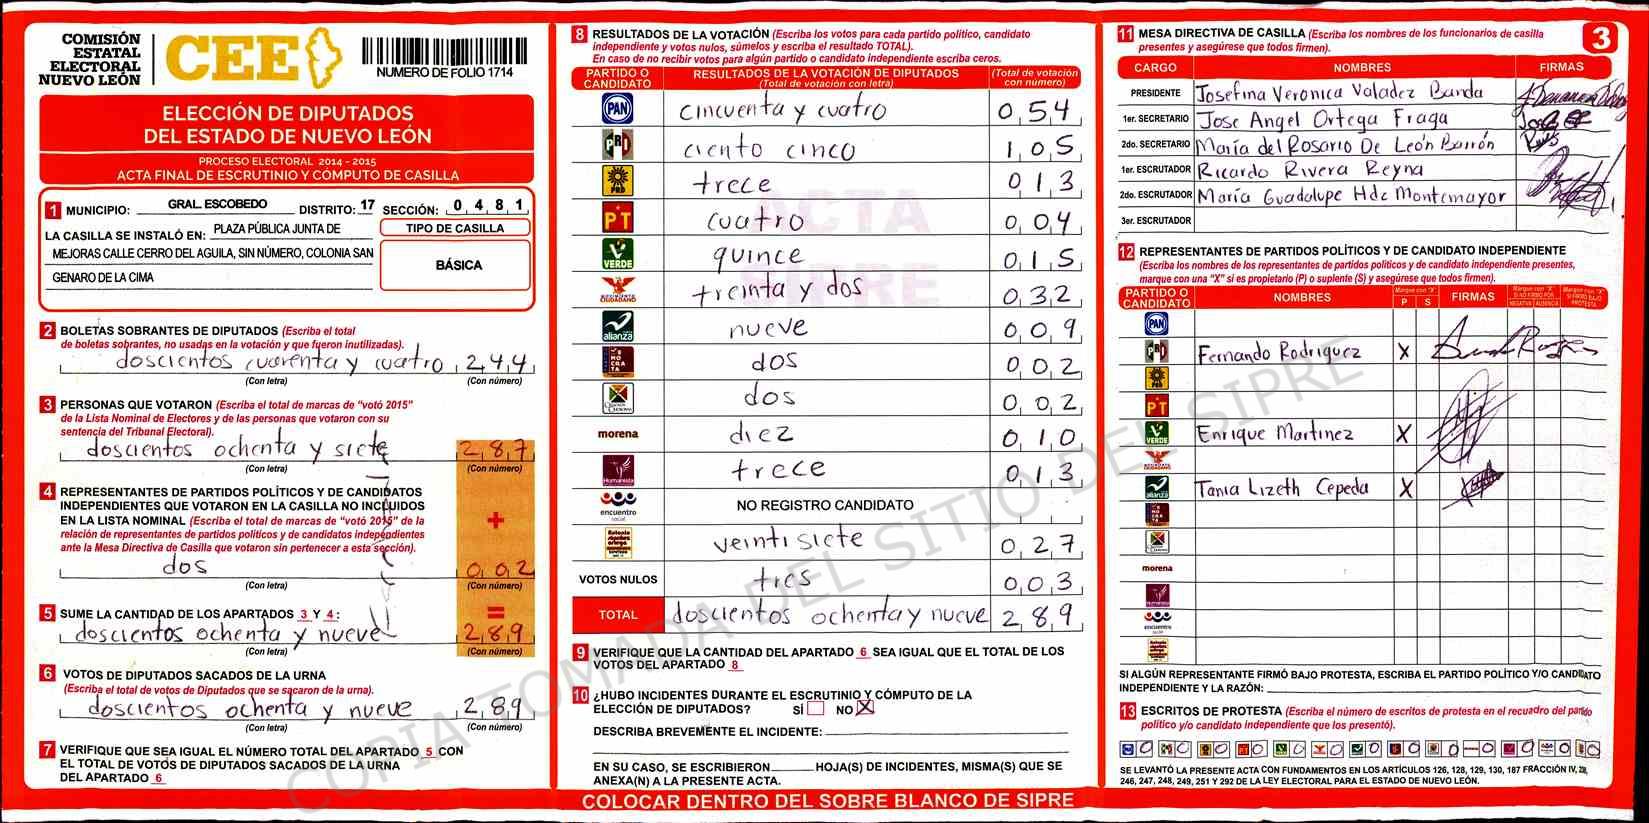 COMISIÓN
ESTATAL
ELECTORAL
NUEVO LEÓN
CEE
NUMERO DE FOLIO 1714
ELECCIÓN DE DIPUTADOS
DEL ESTADO DE NUEVO LEÓN
PROCESO ELECTORAL 2014 - 2015
ACTA FINAL DE ESCRUTINIO Y CÓMPUTO DE CASILLA
1 MUNICIPIO: GRAL. ESCOBEDO DISTRITO: 17 SECCIÓN: 0 4 8 1
LA CASILLA SE INSTALÓ EN: PLAZA PÚBLICA JUNTA DE
MEJORAS CALLE CERRO DEL AGUILA, SIN NÚMERO, COLONIA SAN
GENARO DE LA CIMA
TIPO DE CASILLA
BÁSICA
2 BOLETAS SOBRANTES DE DIPUTADOS (Escriba el total
de boletas sobrantes, no usadas en la votación y que fueron inutilizadas).
doscientos cuarenta y cuatro 2 4 4
(Con letra) (Con número)
3 PERSONAS QUE VOTARON (Escriba el total de marcas de "votó 2015"
de la Lista Nominal de Electores y de las personas que votaron con su
sentencia del Tribunal Electoral).
doscientos ochenta y siete 2 8 7
(Con letra) (Con número)
4 REPRESENTANTES DE PARTIDOS POLÍTICOS Y DE CANDIDATOS
INDEPENDIENTES QUE VOTARON EN LA CASILLA NO INCLUIDOS
EN LA LISTA NOMINAL (Escriba el total de marcas de "votó 2015" de la
relación de representantes de partidos políticos y de candidatos independientes
ante la Mesa Directiva de Casilla que votaron sin pertenecer a esta sección).
+
dos 0 0 2
(Con letra) (Con número)
5 SUME LA CANTIDAD DE LOS APARTADOS 3 Y 4: =
doscientos ochenta y nueve 2 8 9
(Con letra) (Con número)
6 VOTOS DE DIPUTADOS SACADOS DE LA URNA
(Escriba el total de votos de Diputados que se sacaron de la urna).
doscientos ochenta y nueve 2 8 9
(Con letra) (Con número)
7 VERIFIQUE QUE SEA IGUAL EL NÚMERO TOTAL DEL APARTADO 5 CON
EL TOTAL DE VOTOS DE DIPUTADOS SACADOS DE LA URNA
DEL APARTADO 6
8 RESULTADOS DE LA VOTACIÓN (Escriba los votos para cada partido político, candidato
independiente y votos nulos, súmelos y escriba el resultado TOTAL).
En caso de no recibir votos para algún partido o candidato independiente escriba ceros.
PARTIDO O CANDIDATO RESULTADOS DE LA VOTACIÓN DE DIPUTADOS (Total de votación con letra) (Total de votación con número)
PAN cincuenta y cuatro 0 5 4
PRI ciento cinco 1 0 5
PRD trece 0 1 3
PT cuatro 0 0 4
VERDE quince 0 1 5
MOVIMIENTO CIUDADANO treinta y dos 0 3 2
alianza nueve 0 0 9
dos 0 0 2
dos 0 0 2
morena diez 0 1 0
Humanista trece 0 1 3
encuentro social NO REGISTRO CANDIDATO
veinti siete 0 2 7
VOTOS NULOS tres 0 0 3
TOTAL doscientos ochenta y nueve 2 8 9
ACTA
SIPRE
9 VERIFIQUE QUE LA CANTIDAD DEL APARTADO 6 SEA IGUAL QUE EL TOTAL DE LOS
VOTOS DEL APARTADO 8
10 ¿HUBO INCIDENTES DURANTE EL ESCRUTINIO Y CÓMPUTO DE LA
ELECCIÓN DE DIPUTADOS? SÍ NO X
DESCRIBA BREVEMENTE EL INCIDENTE:
EN SU CASO, SE ESCRIBIERON HOJA(S) DE INCIDENTES, MISMA(S) QUE SE
ANEXA(N) A LA PRESENTE ACTA.
COLOCAR DENTRO DEL SOBRE BLANCO DE SIPRE
11 MESA DIRECTIVA DE CASILLA (Escriba los nombres de los funcionarios de casilla
presentes y asegúrese que todos firmen).
3
CARGO NOMBRES FIRMAS
PRESIDENTE Josefina Veronica Valadez Banda
1er. SECRETARIO Jose Angel Ortega Fraga
2do. SECRETARIO María del Rosario De León Barrón
1er. ESCRUTADOR Ricardo Rivera Reyna
2do. ESCRUTADOR María Guadalupe Hdc Montemayor
3er. ESCRUTADOR
12 REPRESENTANTES DE PARTIDOS POLÍTICOS Y DE CANDIDATO INDEPENDIENTE
(Escriba los nombres de los representantes de partidos políticos y de candidato independiente presentes,
marque con una "X" si es propietario (P) o suplente (S) y asegúrese que todos firmen).
PARTIDO O CANDIDATO NOMBRES Marque con "X" P S FIRMAS Marque con "X" SI NO FIRMÓ POR NEGATIVA AUSENCIA Marque con "X" SI FIRMÓ BAJO PROTESTA
PAN
PRI Fernando Rodriguez X
PRD
PT
VERDE Enrique Martinez X
alianza Tania Lizeth Cepeda X
morena
Humanista
encuentro social
SI ALGÚN REPRESENTANTE FIRMÓ BAJO PROTESTA, ESCRIBA EL PARTIDO POLÍTICO Y/O CANDIDATO
INDEPENDIENTE Y LA RAZÓN:
13 ESCRITOS DE PROTESTA (Escriba el número de escritos de protesta en el recuadro del partido
político y/o candidato independiente que los presentó).
0 0 0 0 0 0 0 0 0 0 0 0 0
SE LEVANTÓ LA PRESENTE ACTA CON FUNDAMENTOS EN LOS ARTÍCULOS 126, 128, 129, 130, 187 FRACCIÓN IV,
246, 247, 248, 249, 251 Y 292 DE LA LEY ELECTORAL PARA EL ESTADO DE NUEVO LEÓN.
COPIA TOMADA DEL SITIO DEL SIPRE